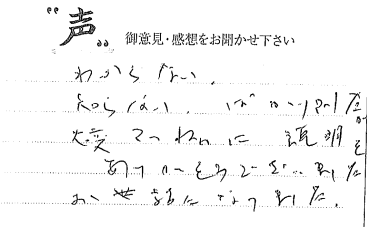 “声” 御意見・感想をお聞かせ下さい
わからない、
知らない、ばかりでしたが
大変ていねいに説明を
ありがとうございました
お世話になりました。